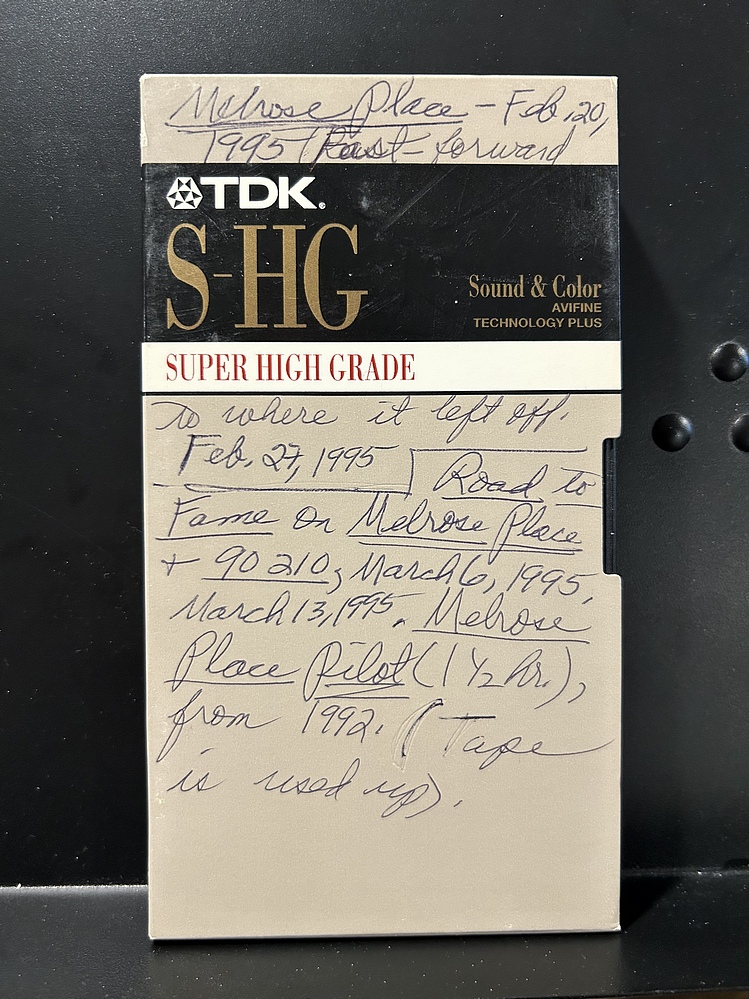 Melrose Place - Feb. 20,
1995 (Fast-forward
TDK®
S-HG
Sound & Color
AVIFINE
TECHNOLOGY PLUS
SUPER HIGH GRADE
to where it left off.
Feb. 27, 1995
Road to
Fame on Melrose Place
+ 90210; March 6, 1995,
March 13, 1995. Melrose
Place pilot (1 1/2 hr.),
from 1992. (Tape
is used up).